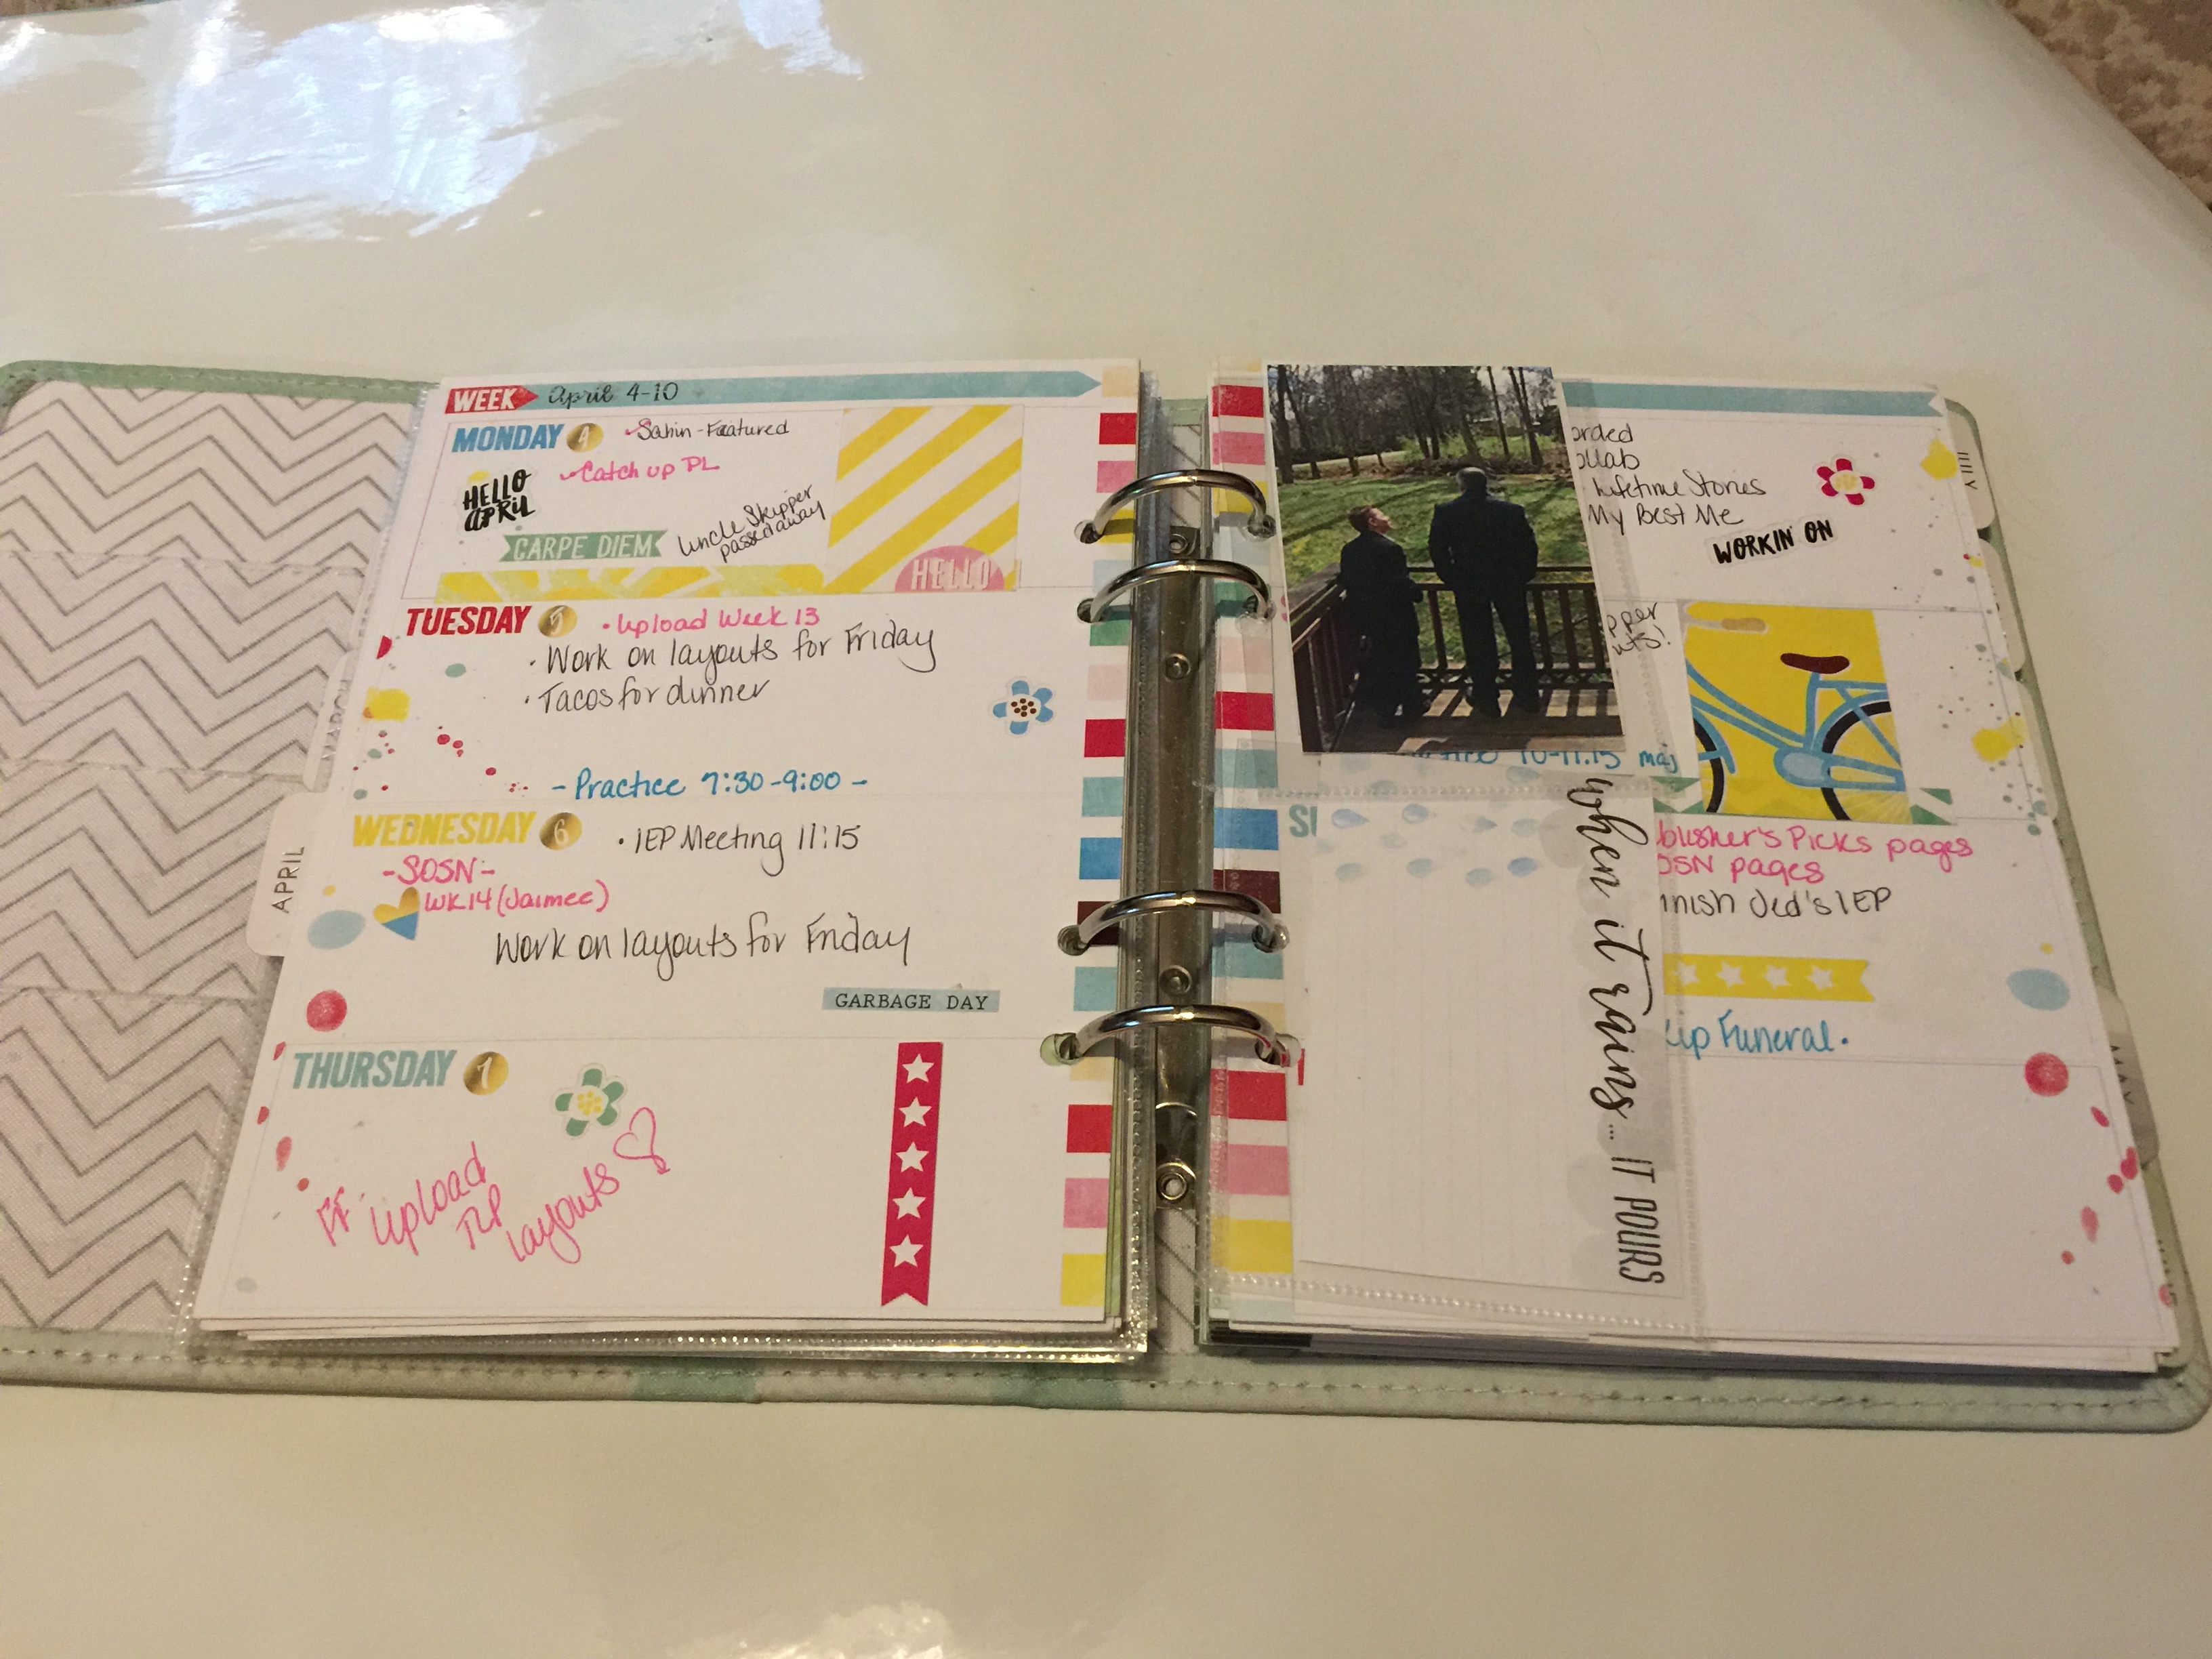 WEEK April 4-10
MONDAY 4
Sahin-Featured
Catch up PL
HELLO
APRIL
CARPE DIEM
Uncle Skipper
passed away
HELLO
TUESDAY 5
• Upload Week 13
• Work on layouts for Friday
• Tacos for dinner
- Practice 7:30-9:00 -
WEDNESDAY 6
• IEP Meeting 11:15
-SOSN-
WK14 (Jaimee)
Work on layouts for Friday
GARBAGE DAY
THURSDAY 7
Upload
TLP
layouts
MARCH
APRIL
Lifetime Stories
My Best Me
WORKIN' ON
10-11:15
when it rains... IT POURS
Picks pages
pages
Jed's IEP
Funeral.
MAY